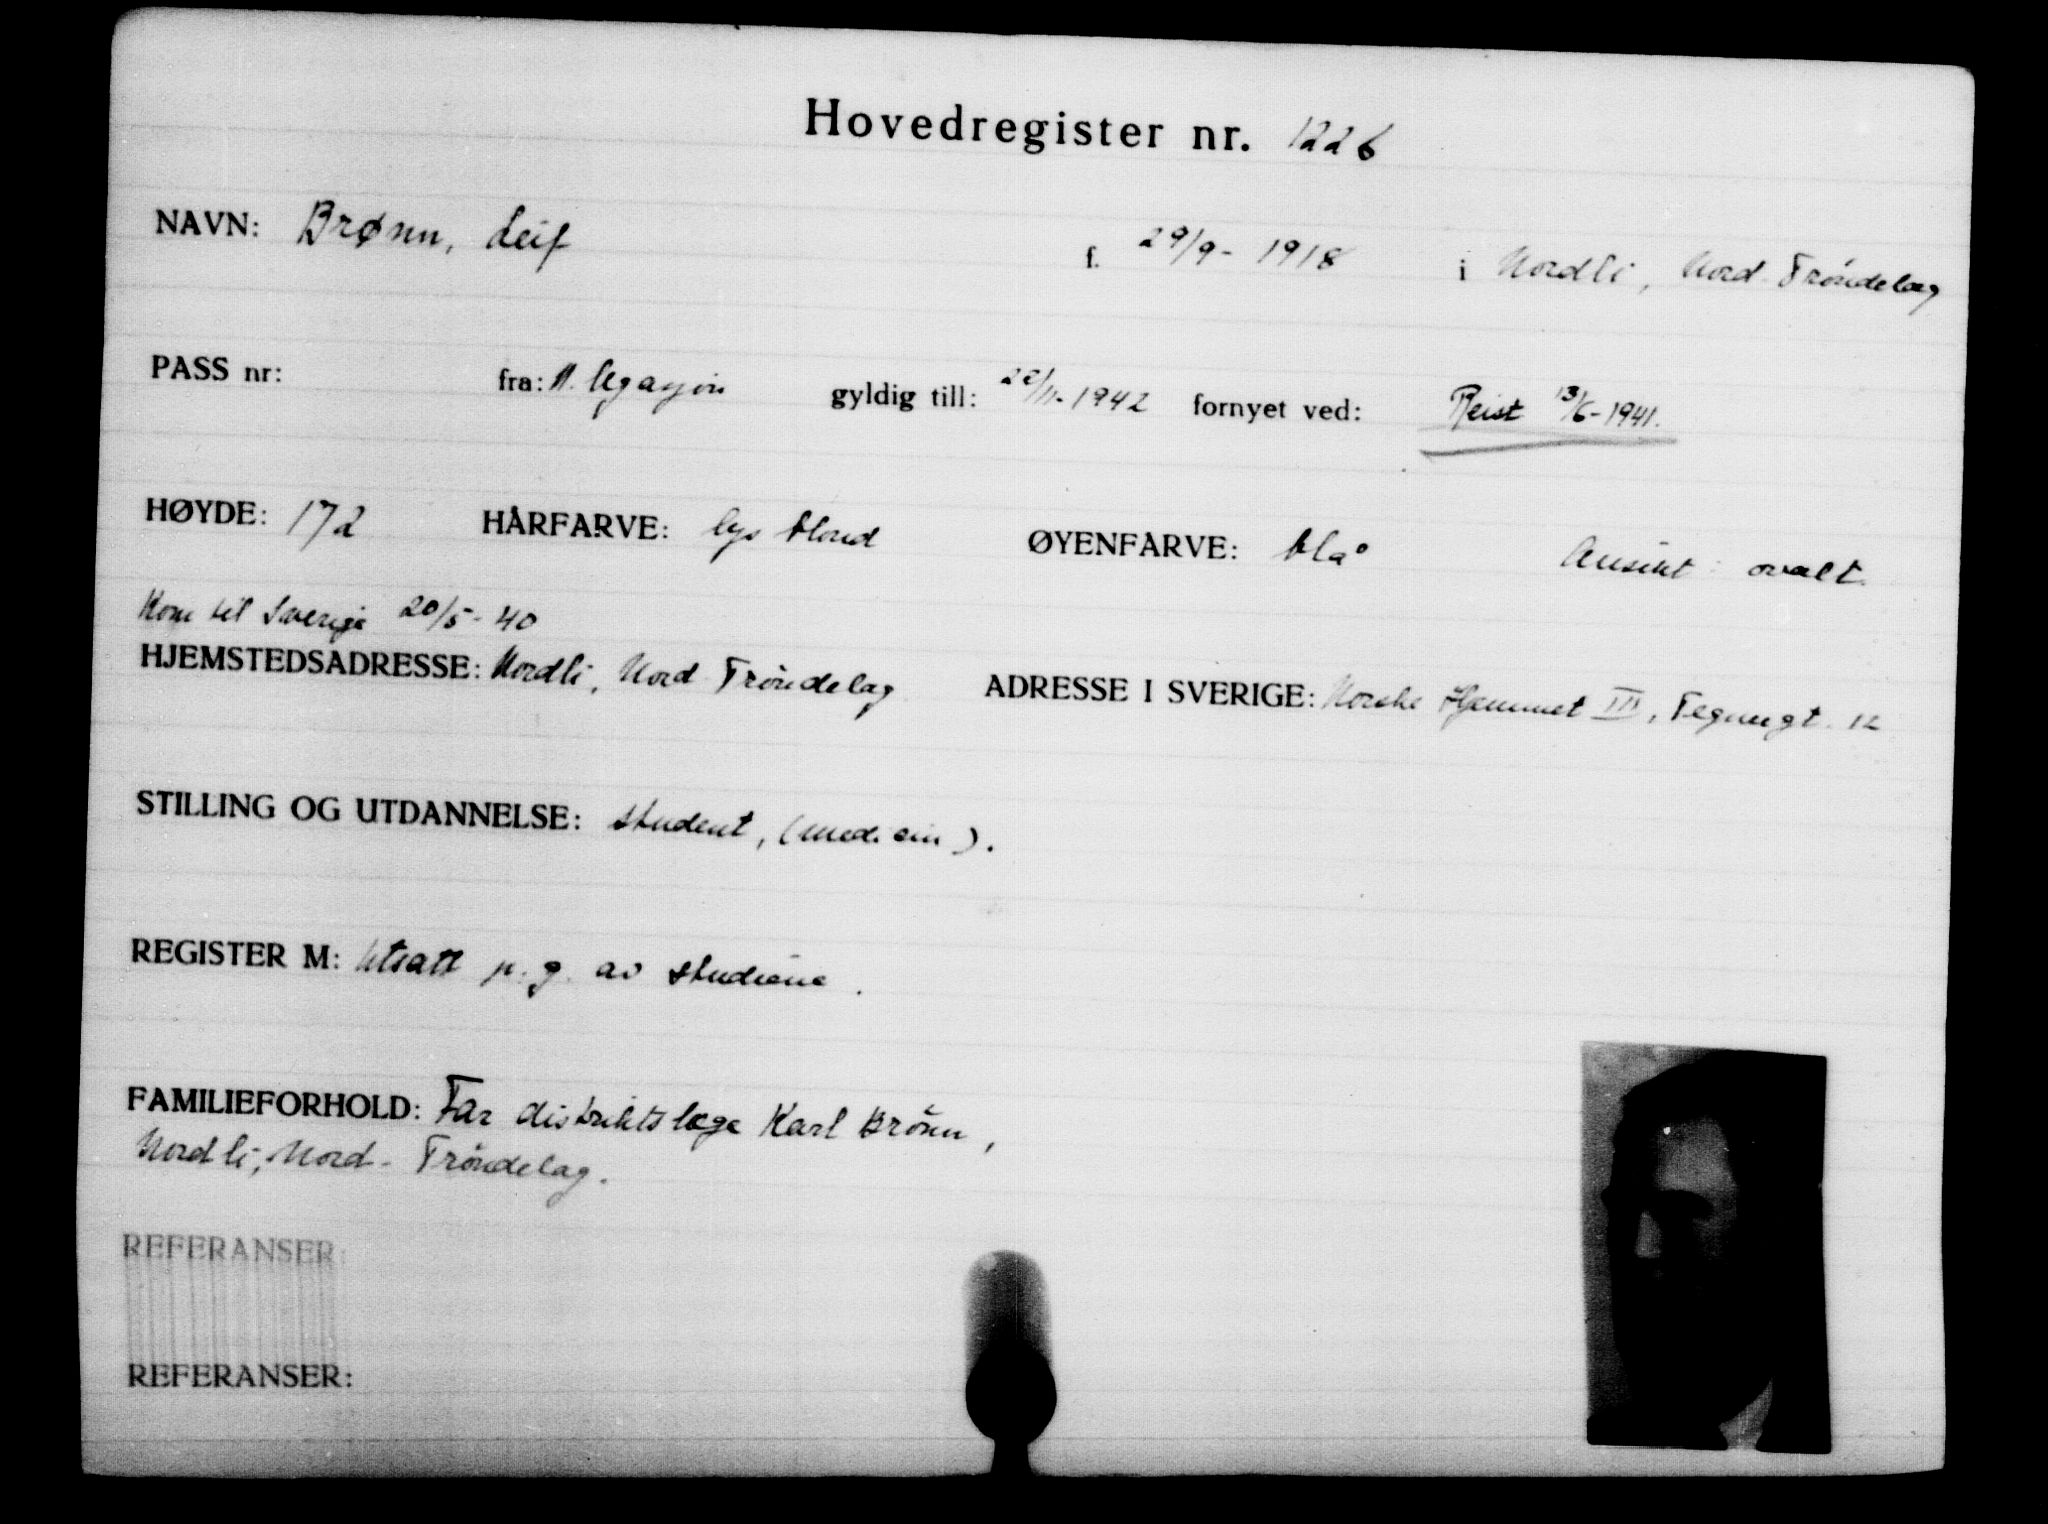 Hovedregister nr. 1226
NAVN: Brønn, Leif f. 29/9- 1918 i Nordli, Nord-Tröndelag
PASS nr: fra: N. legasjon gyldig till: /11-1942 fornyet ved: Reist 13/6-1941.
HØYDE: 172 HÅRFARVE: lys blond ØYENFARVE: blå Ansikt: ovalt.
Kom til Sverige 20/5-40
HJEMSTEDSADRESSE: Nordli, Nord-Tröndelag ADRESSE I SVERIGE: Norske Hjemmet III, Tegnergt. 12
STILLING OG UTDANNELSE: student, (medisin).
REGISTER M: Utsatt p.g. av studiene.
FAMILIEFORHOLD: Far distriktslege Karl Brönn,
Nordli, Nord-Tröndelag.
REFERANSER:
REFERANSER: